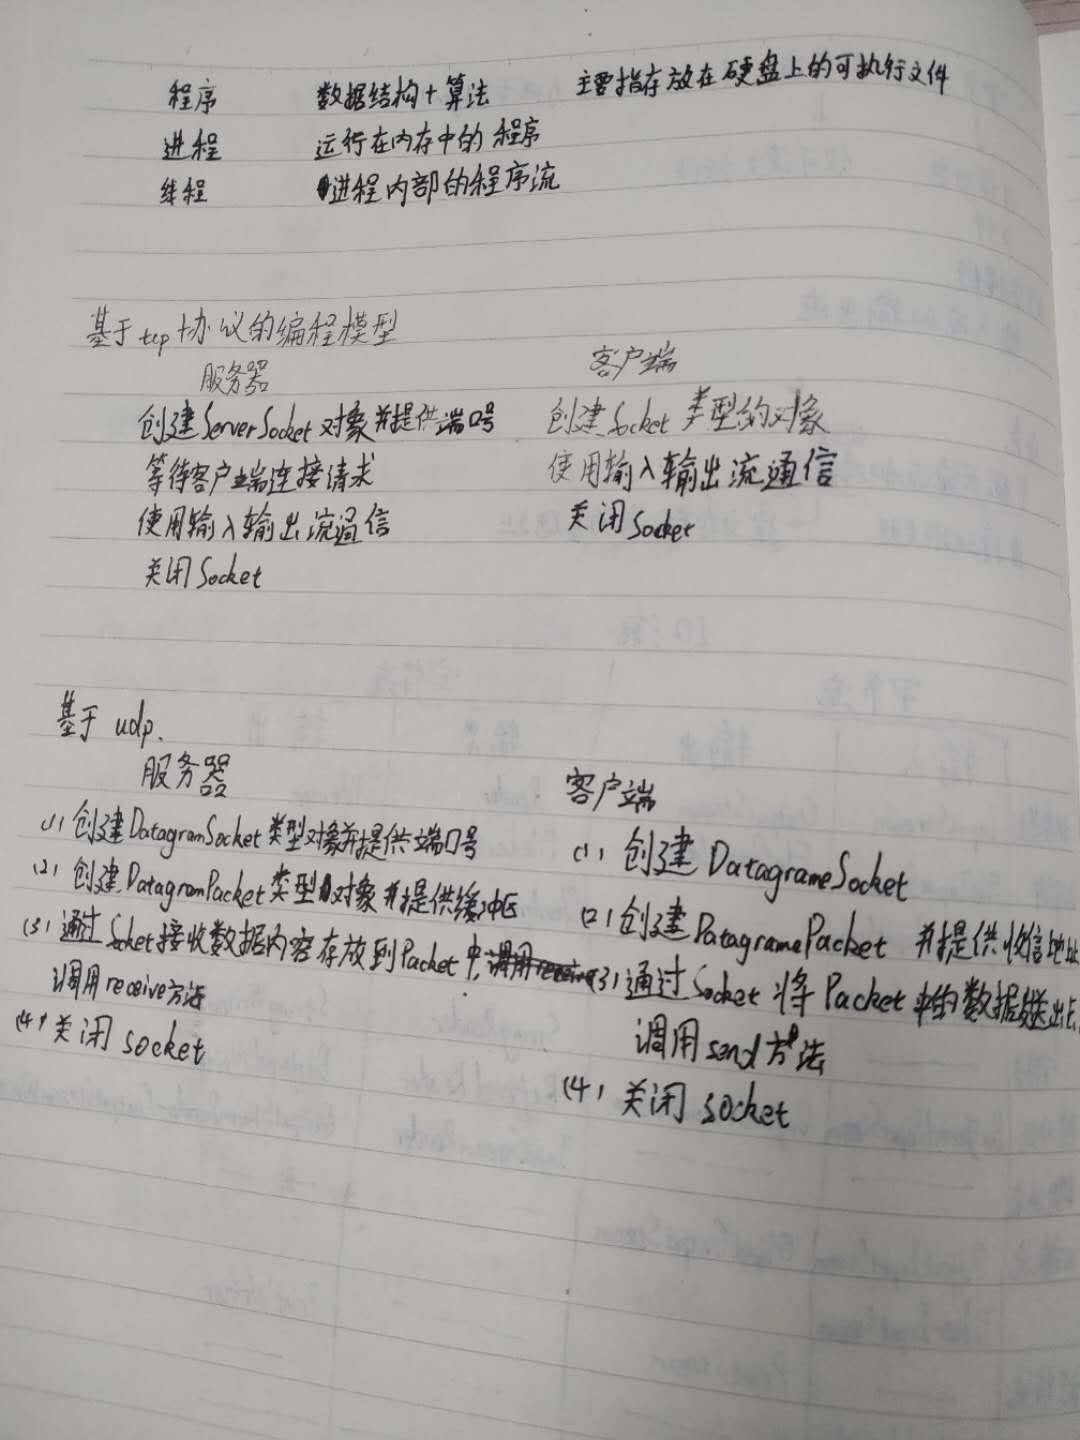 程序 数据结构+算法 主要指存放在硬盘上的可执行文件
进程 运行在内存中的程序
线程 进程内部的程序流
基于tcp协议的编程模型
服务器 客户端
创建ServerSocket对象并提供端口号 创建Socket类型的对象
等待客户端连接请求 使用输入输出流通信
使用输入输出流通信 关闭Socket
关闭Socket
基于udp.
服务器
(1) 创建DatagramSocket类型对象并提供端口号
(2) 创建DatagramPacket类型对象并提供缓冲区
(3) 通过Socket接收数据内容存放到Packet中,
调用receive方法
(4) 关闭socket
客户端
(1) 创建DatagrameSocket
(2) 创建DatagramePacket 并提供收信地址
(3) 通过Socket将Packet中的数据发送出去,
调用send方法
(4) 关闭socket